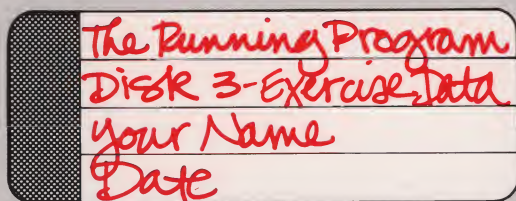 The Running Program
Disk 3-Exercise Data
Your Name
Date